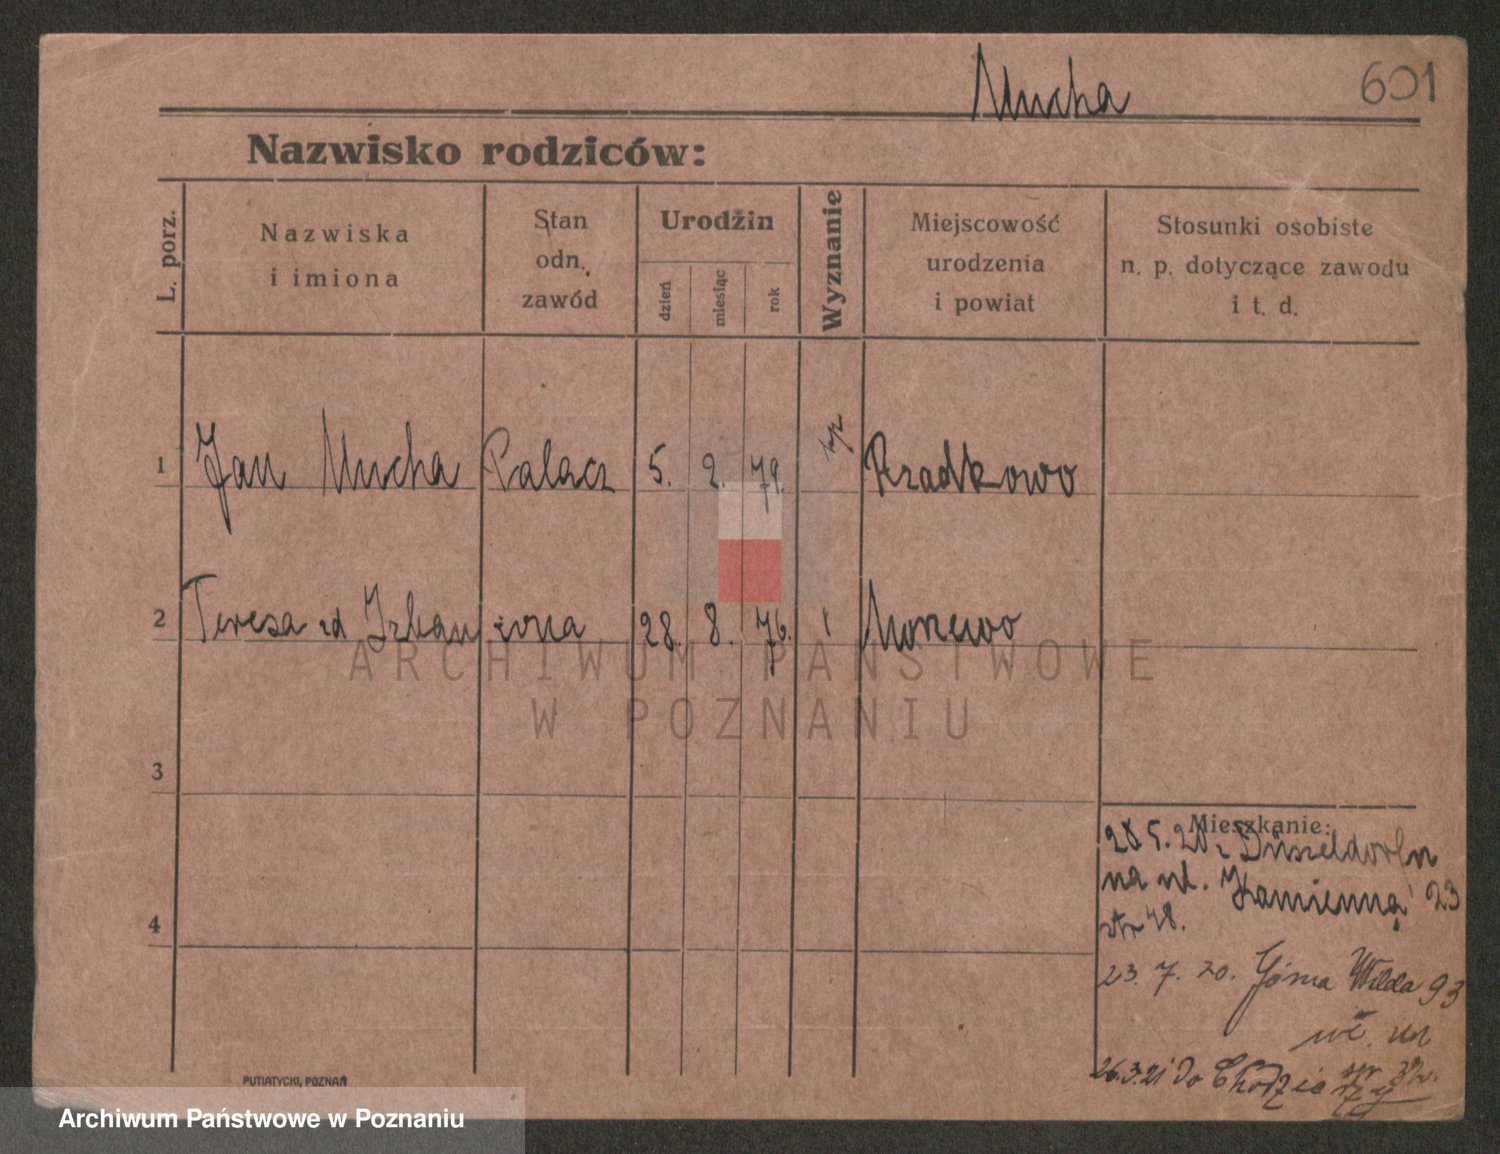 Mucha
601
Nazwisko rodziców:
L. porz.
Nazwiska
i imiona
Stan
odn.
zawód
Urodzin
dzień
miesiąc
rok
Wyznanie
Miejscowość
urodzenia
i powiat
Stosunki osobiste
n. p. dotyczące zawodu
i t. d.
1 Jan Mucha Palacz 5. 2. 79. Rzadkowo
2 Teresa zd żona 28. 8. 76.
3
4
Mieszkanie:
28.5.20 z Düsseldorfu
na ul. Kamienną 23
48.
23. 7. 20. Górna Wilda 93
26.3.21 do
PUTIATYCKI, POZNAŃ
ARCHIWUM PAŃSTWOWE
W POZNANIU
Archiwum Państwowe w Poznaniu